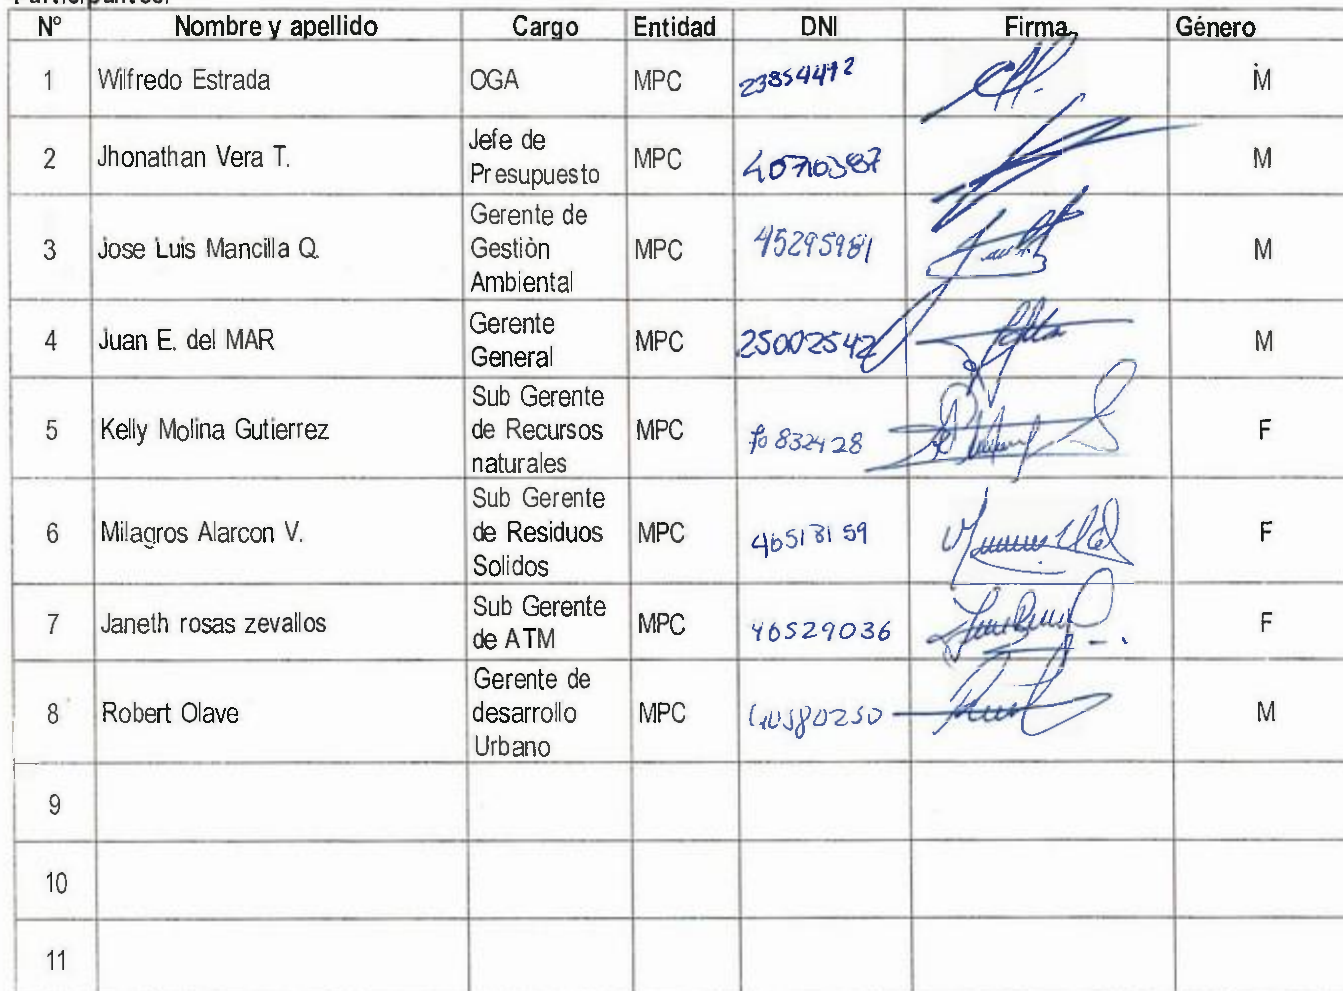 Participantes:
N° Nombre y apellido Cargo Entidad DNI Firma Género
1 Wilfredo Estrada OGA MPC 23854472 M
2 Jhonathan Vera T. Jefe de Presupuesto MPC 40710387 M
3 Jose Luis Mancilla Q. Gerente de Gestiòn Ambiental MPC 45295981 M
4 Juan E. del MAR Gerente General MPC 25002542 M
5 Kelly Molina Gutierrez Sub Gerente de Recursos naturales MPC 70832428 F
6 Milagros Alarcon V. Sub Gerente de Residuos Solidos MPC 46518159 F
7 Janeth rosas zevallos Sub Gerente de ATM MPC 46529036 F
8 Robert Olave Gerente de desarrollo Urbano MPC M
9
10
11